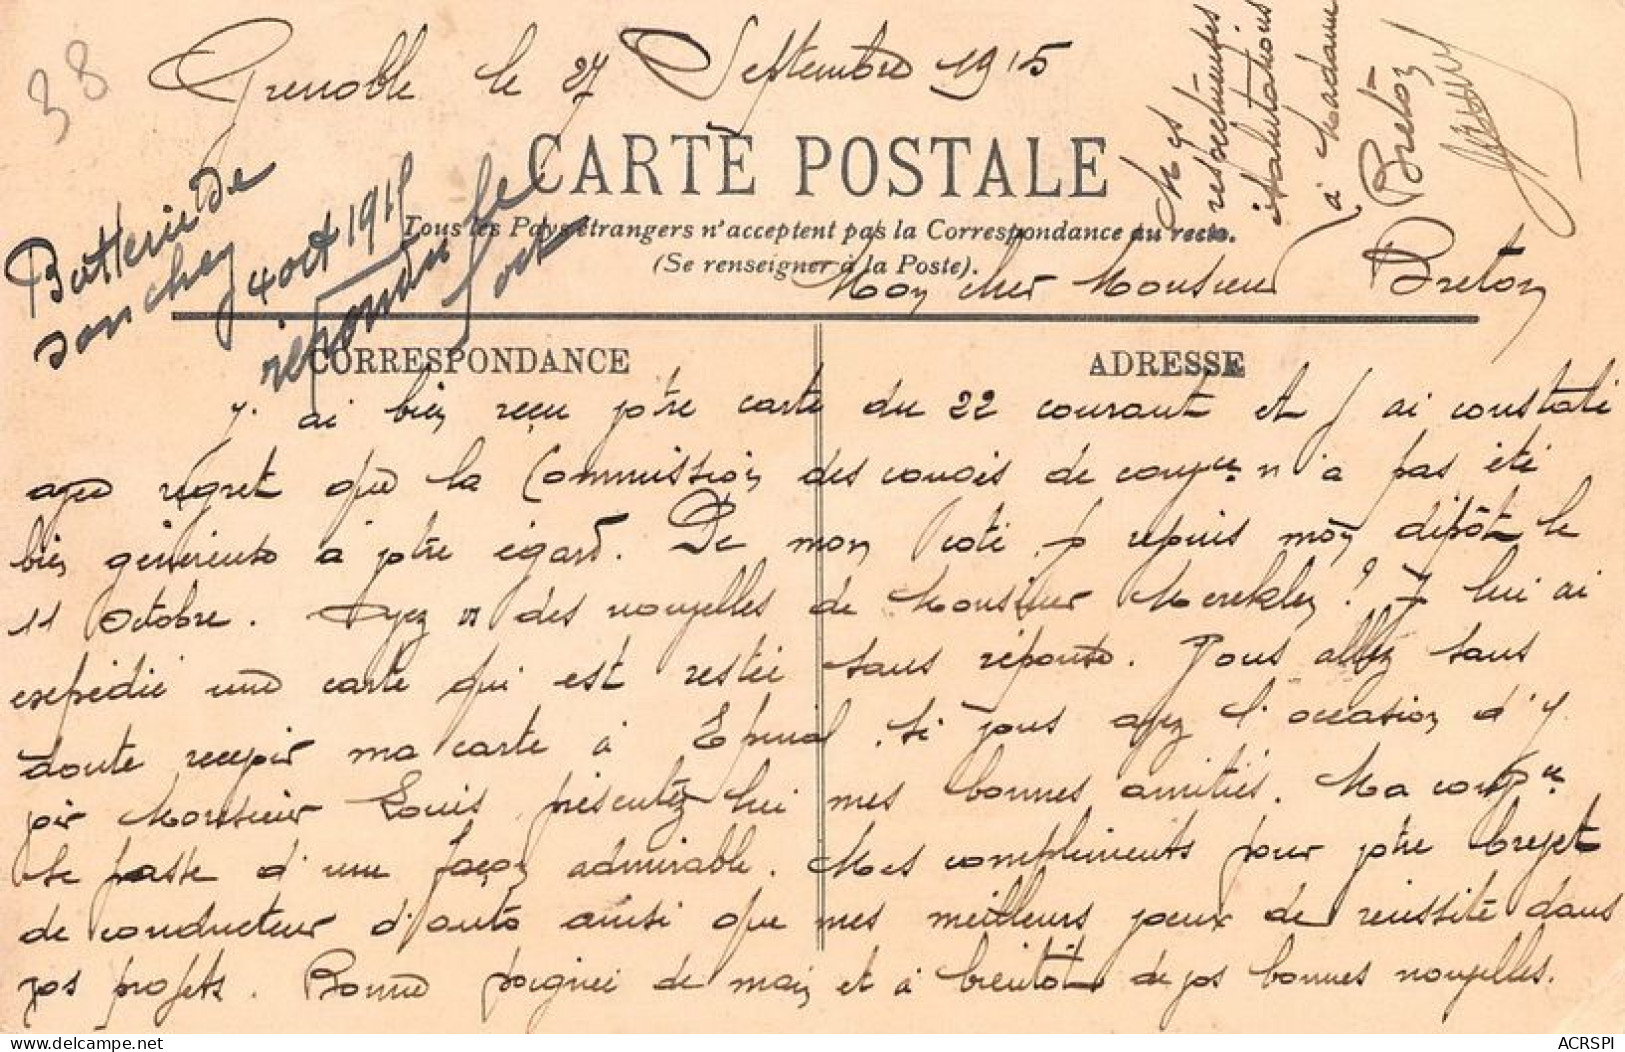 38
Grenoble le 27 Septembre 1915
CARTE POSTALE
Tous les Pays étrangers n'acceptent pas la Correspondance au recto.
(Se renseigner à la Poste).
Batterie de
4 oct 1915
répondu le
oct
Mes
respectueuses
salutations
à Madame
Breton
Mon cher Monsieur Breton
CORRESPONDANCE
ADRESSE
J'ai bien reçu votre carte du 22 courant et j'ai constaté
avec regret que la Commission des congés de conv.ce n'a pas été
bien généreuse à votre égard. De mon côté, je rejoins mon dépôt le
11 Octobre. Avez vs des nouvelles de Monsieur ? Je lui ai
expédié une carte qui est restée sans réponse. Vous allez sans
doute recevoir ma carte à Epinal. Si vous avez l'occasion d'y
voir Monsieur Louis, présentez lui mes bonnes amitiés. Ma conv.ce
se passe d'une façon admirable. Mes compliments pour votre brevet
de conducteur d'auto ainsi que mes meilleurs voeux de réussite dans
vos projets. Bonne poignée de main et à bientôt de vos bonnes nouvelles.
ACRSPI
delcampe.net